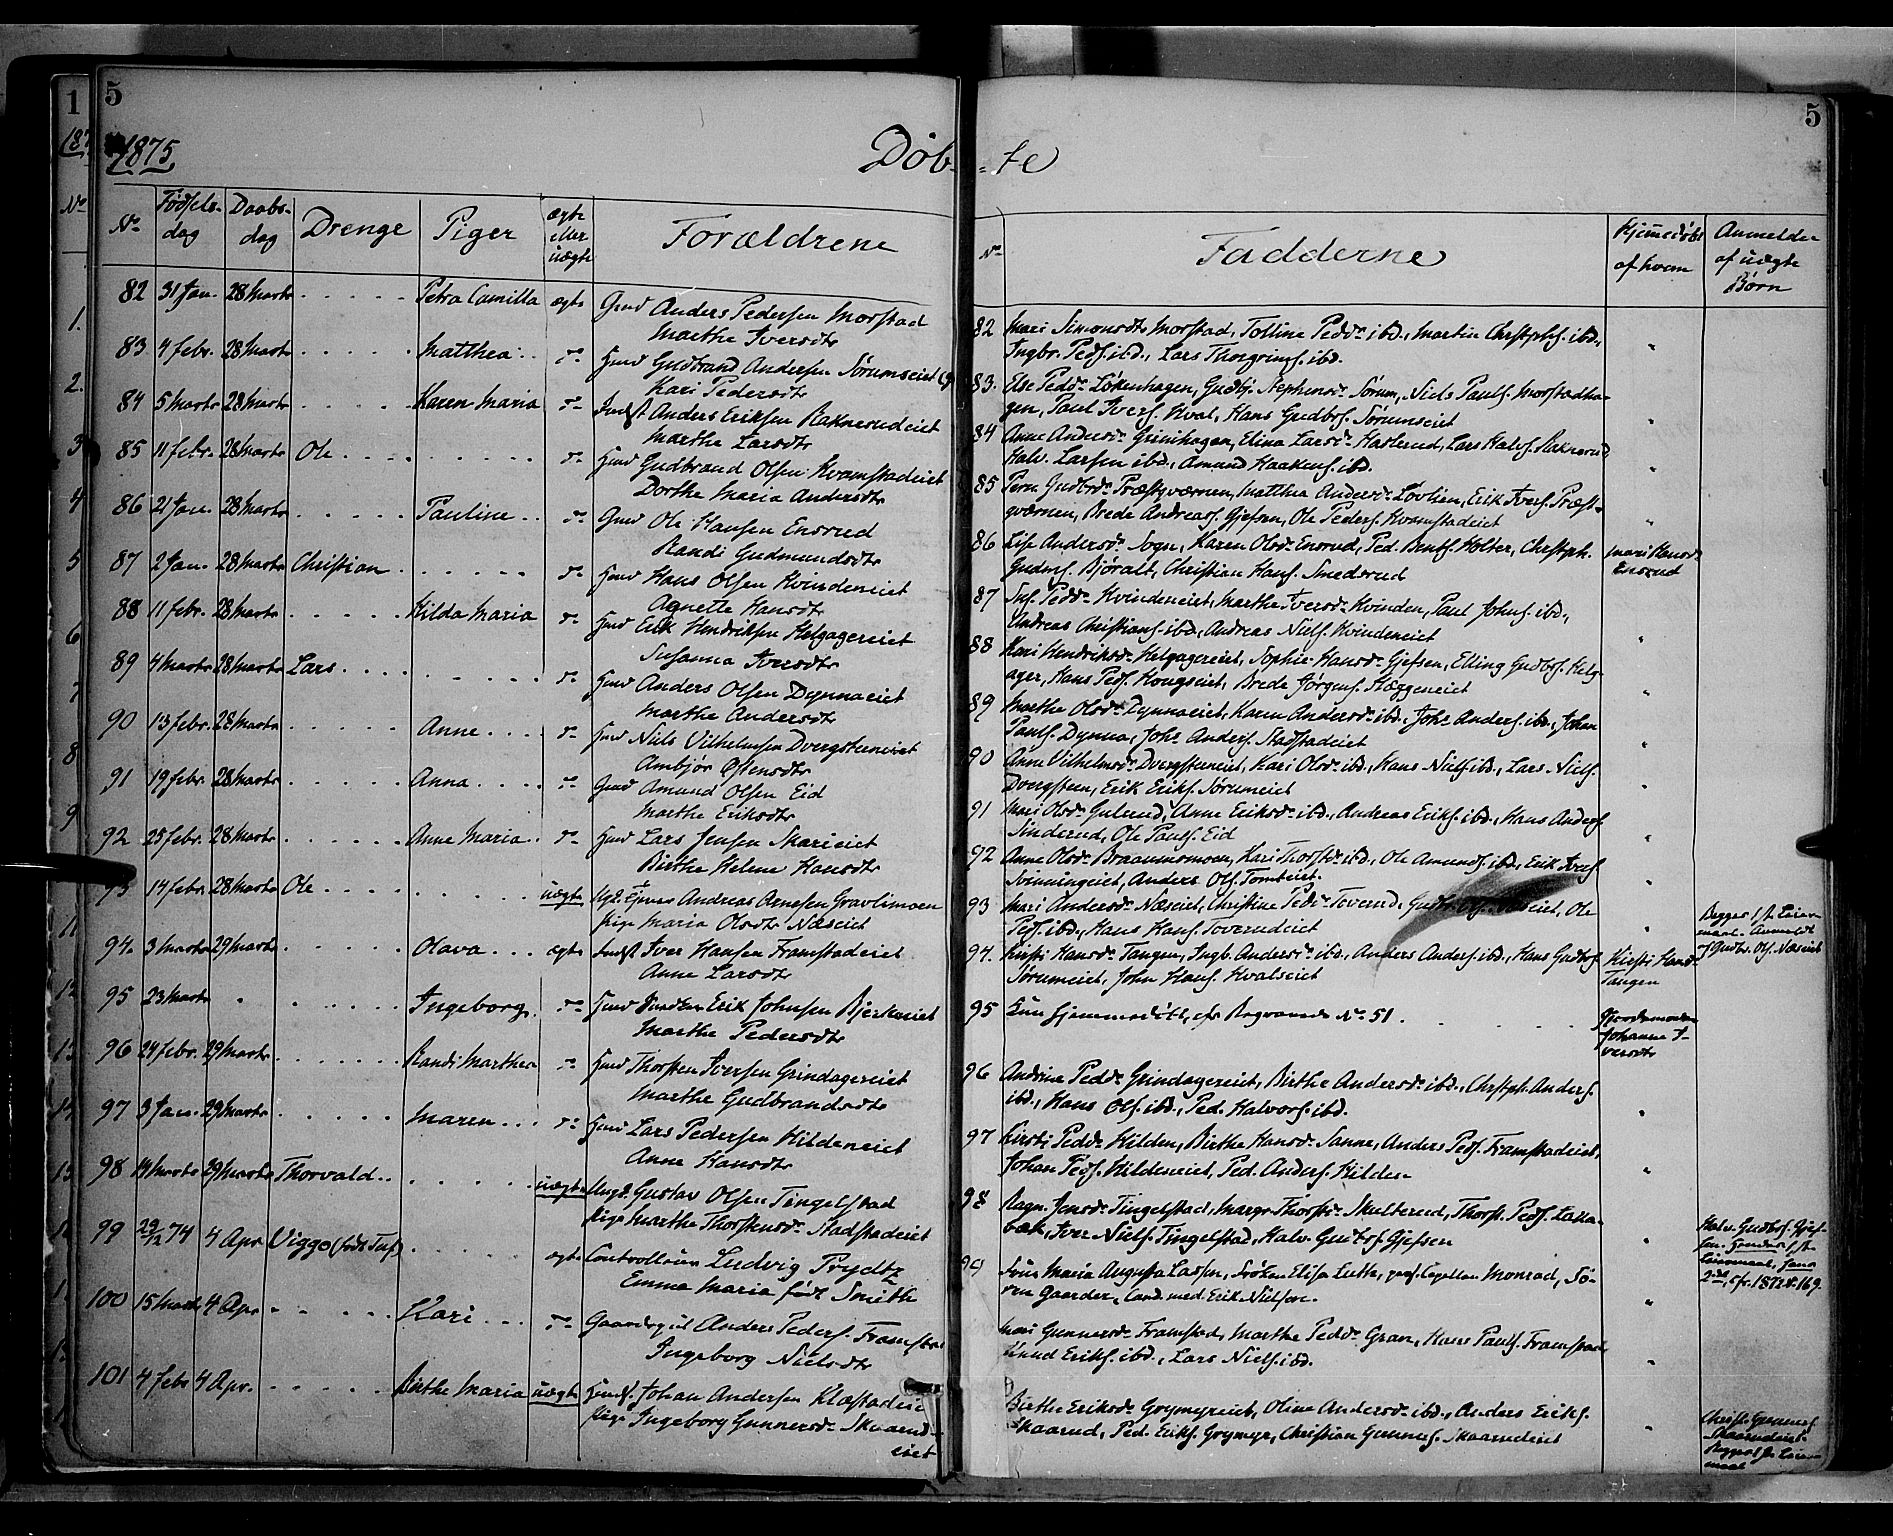 5
5
1875
Døb-
-te
No
Fødsels-
dag
Daabs-
dag
Drenge
Piger
ægte
eller
uægte
Forældrene
No
Fadderne
Hjemmedøbt
af hvem
Anmelder
af uægte
Børn
82 31 Jan. 28 Marts Petra Camilla ægte Gmd Anders Pedersen Morstad
Marthe Iversdtr
83 4 febr. 28 Marts Matthea do Hmd Gudbrand Andersen Sørumseiet
Kari Pedersdtr
84 5 Marts 28 Marts Karen Maria do Inds Anders Eriksen Raknerudeiet
Marthe Larsdtr
85 11 febr. 28 Marts Ole do Hmd Gudbrand Olsen Kvamstadeiet
Dorthe Maria Andersdtr
86 21 Jan. 28 Marts Pauline do Gmd Ole Hansen Ensrud
Randi Gudmundsdtr
87 2 Jan. 28 Marts Christian do Hmd Hans Olsen Hvindeneiet
Agnette Hansdtr
88 11 febr. 28 Marts Hilda Maria do Hmd Erik Hendriksen Helgagereiet
Susanna Iversdtr
89 4 Marts 28 Marts Lars do Hmd Anders Olsen Dynnaeiet
Marthe Andersdtr
90 13 febr. 28 Marts Anne do Hmd Niels Vilhelmsen Dvergsteneiet
Ambjør Østensdtr
91 19 febr. 28 Marts Anna do Gmd Amund Olsen Eid
Marthe Eriksdtr
92 25 febr. 28 Marts Anne Maria do Hmd Lars Jensen Skarieiet
Birthe Helene Hansdtr
93 14 febr. 28 Marts Ole uægte Andreas Arnesen Gravlimoen
Pige Maria Olsdtr Næseiet
94 3 Marts 29 Marts Olava ægte Inds Iver Hansen Framstadeiet
Anne Larsdtr
95 23 Marts Ingeborg do Hmd Erik Johnsen Bjerkeeiet
Marthe Pedersdtr
96 24 febr. 29 Marts Randi Marthea do Hmd Thorsten Iversen Grindagereiet
Marthe Gudbrandsdtr
97 3 Jan. 29 Marts Maren do Hmd Lars Pedersen Hildeneiet
Anne Hansdtr
98 14 Marts 29 Marts Thorvald uægte Ungk. Gustav Olsen Tingelstad
Pige Marthe Thorstensdr Stadstadeiet
99 29/12 74 4 Apr Viggo ægte Controlleur Ludvig Prydtz
Emma Maria født Smith
100 15 Marts 4 Apr Kari do Gaardbr. Anders Peders. Framstad
Ingeborg Nielsdtr
101 4 febr 4 Apr. Birthe Maria uægte Johan Andersen Klæstadeie
Pige Ingeborg Gunnersdr Skaarud-
eiet
82 Mari Simonsdtr Morstad, Tolline Pedr. ibd., Martin Christophs. ibd.,
Ingbr. Peds. ibd., Lars Thorgrims. ibd.
83. Else Pedr Løkenhagen, Gudbj. Stephensdr Sørum, Niels Pauls. Morstadha-
gen, Paul Ivers. Hval, Hans Gudbrs. Sørumseiet
84 Anne Andersdr Grinihagen, Elina Larsdr Haslerud, Lars Halvs. Raknerud
Halv. Larsen ibd., Amund Haakens. ibd.
85 Pern. Gudbrdr Præstqværnen, Matthea Andersdr Løvlien, Erik Ivers. Præst-
qværnen, Brede Andreass. Gjefsen, Ole Peders. Kvamstadeiet
86 Lise Andersdr Sogn, Karen Olsdr Ensrud, Ped. Bents. Holter, Christph.
Gudms. Bjøralt, Christian Hans. Smedsrud
Mari Hansdr
Ensrud
87 Inf. Pedr Hvindeneiet, Marthe Iversdr Hvinden, Paul Johns. ibd.,
Andreas Christians. ibd., Andreas Niels. Hvindeneiet
88 Kari Hendriksdr Helgagereiet, Sophie Hansdr Gjefsen, Elling Gudbrs. Helg-
ager, Hans Peds. Hougseiet, Brede Jørgens. Hæggeneiet
89 Marthe Olsdr Dynnaeiet, Karen Andersdr ibd., Johs Anders. ibd., Johan
Pauls. Dynna, Johs Anders. Stadstadeiet
90 Anne Vilhelmsdr Dvergsteneiet, Kari Olsdr ibd., Hans Niels. ibd., Lars Niels.
Dvergsteen, Erik Eriks. Sørumeiet
91 Mari Olsdr Gulerud, Anne Eriksdr ibd., Andreas Eriks. ibd., Hans Anders.
Sinderud, Ole Pauls. Eid
92 Anne Olsdr Braanaamoen, Kari Thorstdr ibd., Ole Amunds. ibd., Erik Ivers.
Svinningeiet, Anders Ols. Tomteiet.
93 Mari Andersdr Næseiet, Christine Pedr Toverud, Gudbr. Ols. Næseiet, Ole
Peds. ibd., Hans Hans. Toverudeiet
Begges 1ste Leier-
maal. Anmeldt
af Gudbr. Ols. Næseiet
94. Kirsti Hansdr Tangen, Ingb. Andersdr ibd., Anders Anders. ibd., Hans Gudbrs.
Sørumeiet, John Hans. Hvalseiet
Kirsti Hansdr
Tangen
95 Kun hjemmedøbt, cfr Begravede No 51.
Gjordemoder
Johanne I-
versdtr
96 Andrine Pedr Grindagereiet, Birthe Andersdr ibd., Christph. Anders.
ibd., Hans Ols. ibd., Ped. Halvors. ibd.
97 Kirsti Pedr Hilden, Birthe Hansdr Sanne, Anders Peds. Framstadeiet,
Johan Peds. Hildeneiet, Ped. Anders. Hilden
98 Ragn. Jensdr Tingelstad, Margr. Thorstdr Skulterud, Thorst. Peds. Laka-
bæk, Iver Niels. Tingelstad, Halv. Gudbrs. Gjefsen
Halv. Gudbrs. Gjef-
sen. Hendes 1ste
Leiermaal, hans
2det, cfr. 1872 No 169.
99 Frue Maria Augusta Lassen, Frøken Elise Luth, pers. Capellan Monrad, Sø-
ren Gaarder, Cand. med. Erik Nielsen.
Mari Gunnersdr Framstad, Marthe Pedr Gran, Hans Pauls. Framstad
Knud Eriks. ibd., Lars Niels. ibd.
Birthe Eriksdr Grymyreiet, Oline Andersdr ibd., Anders Eriks.
Skaarud, Ped. Eriks. Grymyr, Christian Gunners. Skaarudeiet
Christ. Gunners.
Skaarudeiet.
Begges 1ste Leier-
maal